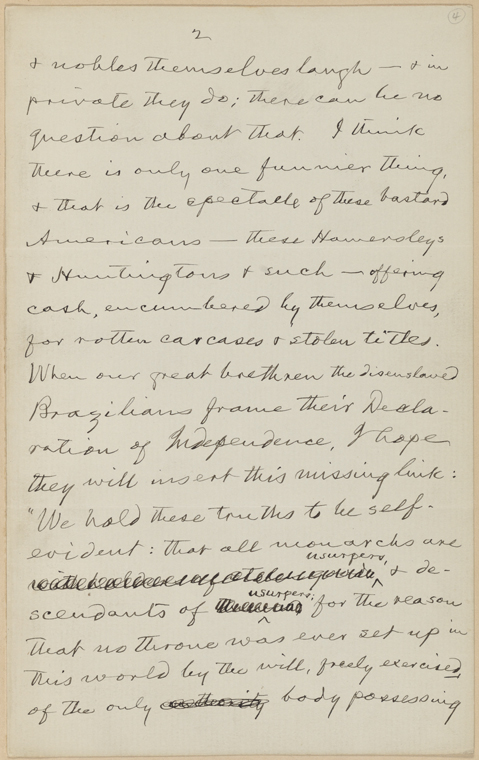 4
2
& nobles themselves laugh — & in
private they do; there can be no
question about that. I think
there is only one funnier thing,
& that is the spectacle of these bastard
Americans — these Hamersleys
& Huntingtons & such — offering
cash, encumbered by themselves,
for rotten carcases & stolen titles.
When our great brethren the disenslaved
Brazilians frame their Decla-
ration of Independence, I hope
they will insert this missing link:
"We hold these truths to be self-
evident: that all monarchs are
usurpers,
& de-
usurpers;
scendants of for the reason
that no throne was ever set up in
this world by the will, freely exercised,
of the only authority body possessing